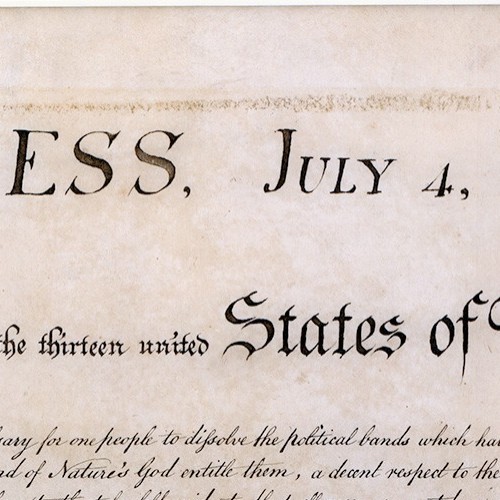 ESS, JULY 4,
the thirteen united States of
sary for one people to dissolve the political bands which ha
nd of Nature's God entitle them, a decent respect to th